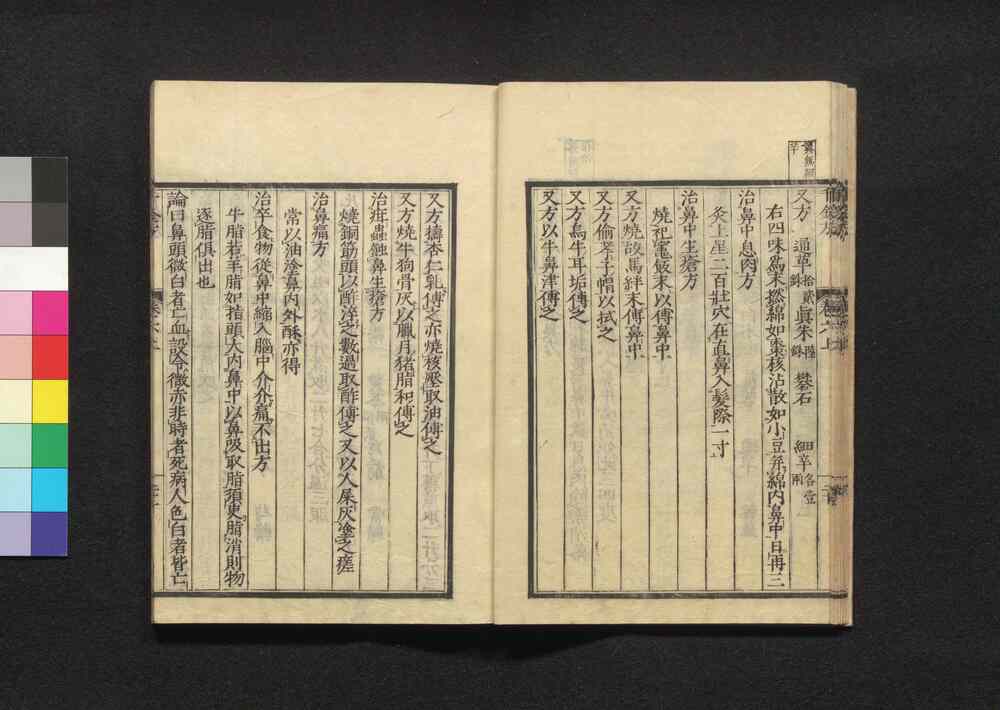 又方 通草 拾貳銖 真朱 陸銖 礬石 細辛 各壹兩
右四味爲末撚綿如棗核沾散如小豆并綿内鼻中日再三
治鼻中息肉方
灸上星二百壯穴在直鼻入髮際一寸
治鼻中生瘡方
燒祀竈飯末以傅鼻中
又方燒故馬絆末傅鼻中
又方偷孝子帽以拭之
又方烏牛耳垢傅之
又方以牛鼻津傅之
又方擣杏仁乳傅之亦燒核壓取油傅之
又方燒牛狗骨灰以臘月豬脂和傅之
治疳蟲蝕鼻生瘡方
燒銅筯頭以酢淬之數過取酢傅之又以人屎灰塗之瘥
治鼻痛方
常以油塗鼻内外酥亦得
治卒食物從鼻中縮入腦中介介痛不出方
牛脂若羊脂如指頭大内鼻中以鼻吸取脂須臾脂消則物
逐脂俱出也
論曰鼻頭微白者亡血設令微赤非時者死病人色白者皆亡